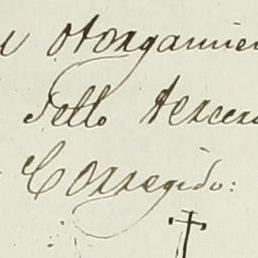 otorgamien
Sello tercero
Corregido: